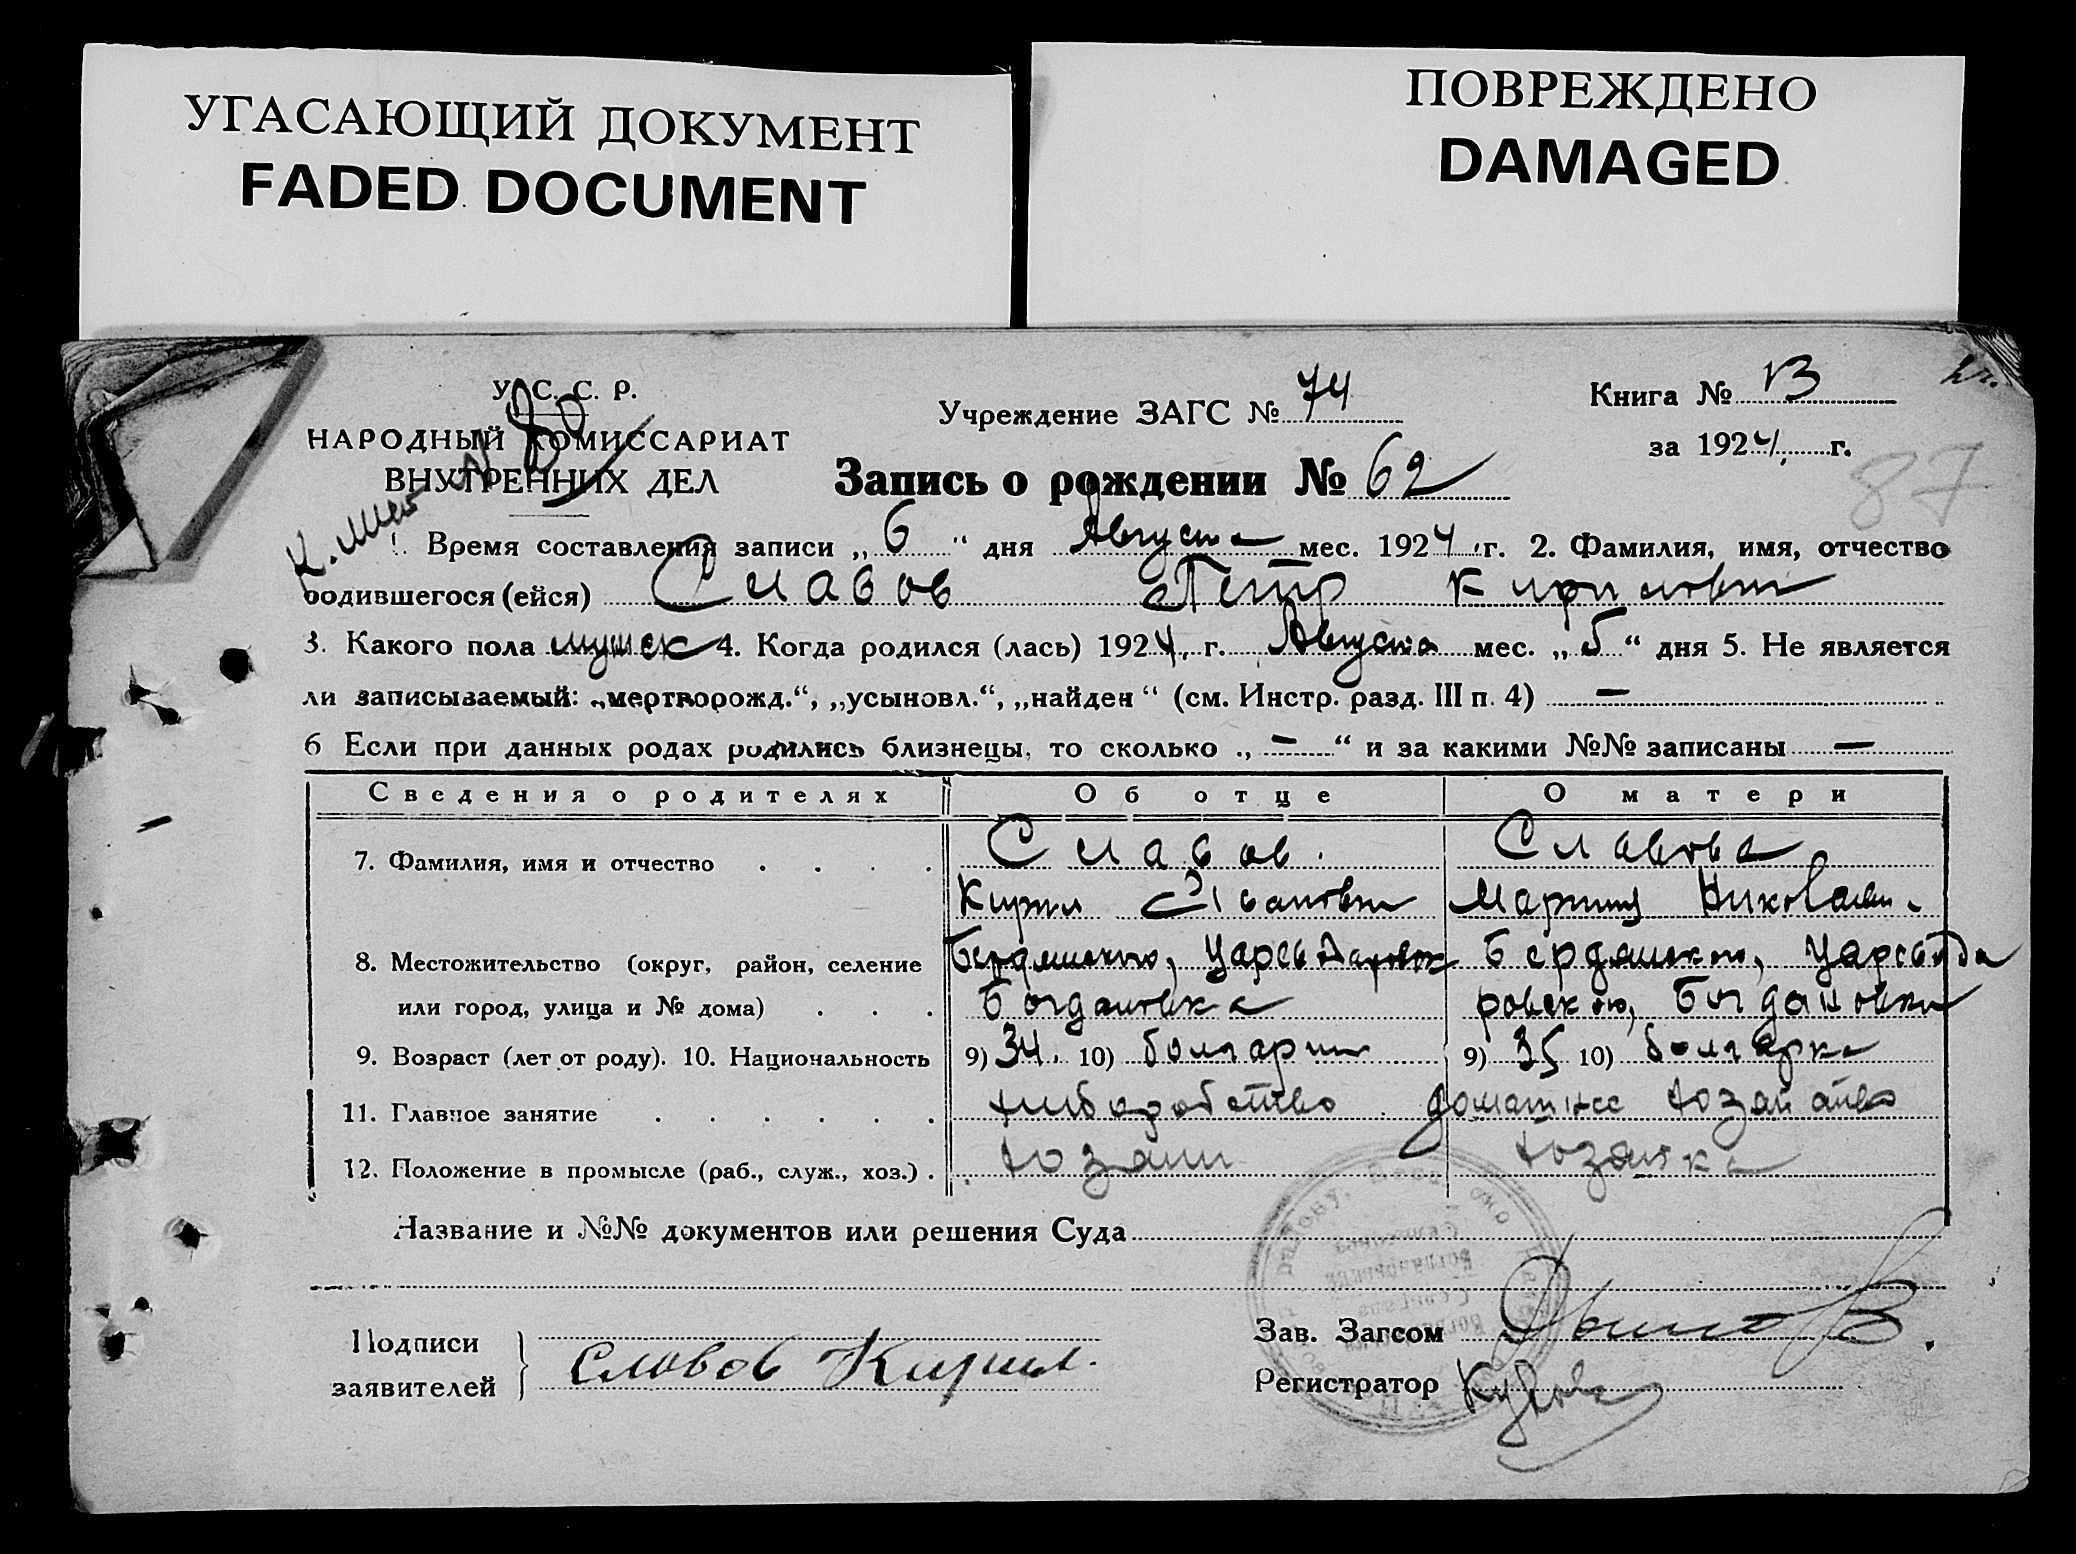 УГАСАЮЩИЙ ДОКУМЕНТ
FADED DOCUMENT
ПОВРЕЖДЕНО
DAMAGED
У. С. С. Р.
НАРОДНЫЙ КОМИССАРИАТ
ВНУТРЕННИХ ДЕЛ
Учреждение ЗАГС № 74
Книга №
за 1924 г.
87
Запись о рождении № 62
1. Время составления записи „ 6 “ дня Августа мес. 1924 г. 2. Фамилия, имя, отчество
родившегося (ейся) Славов Петр Кирилович
3. Какого пола мужск 4. Когда родился (лась) 1924 г. Августа мес. „ 5 “ дня 5. Не является
ли записываемый: „мертворожд.“, „усыновл.“, „найден“ (см. Инстр. разд. III п. 4) —
6 Если при данных родах родились близнецы, то сколько „ — “ и за какими №№ записаны —
Сведения о родителях Об отце О матери
7. Фамилия, имя и отчество . . . . Славов. Славова
Кирил Николаев.
8. Местожительство (округ, район, селение Бердянского, Бердянского,
или город, улица и № дома) . . . Богдановка ровского, Богдановки
9. Возраст (лет от роду). 10. Национальность 9) 34. 10) болгарин 9) 35 10) болгарка
11. Главное занятие . . . . . . хлиборобство домашнее
12. Положение в промысле (раб., служ., хоз.) . хозяин хозяйка
Название и №№ документов или решения Суда
Подписи
заявителей } Славов Кирил.
Зав. Загсом
Регистратор